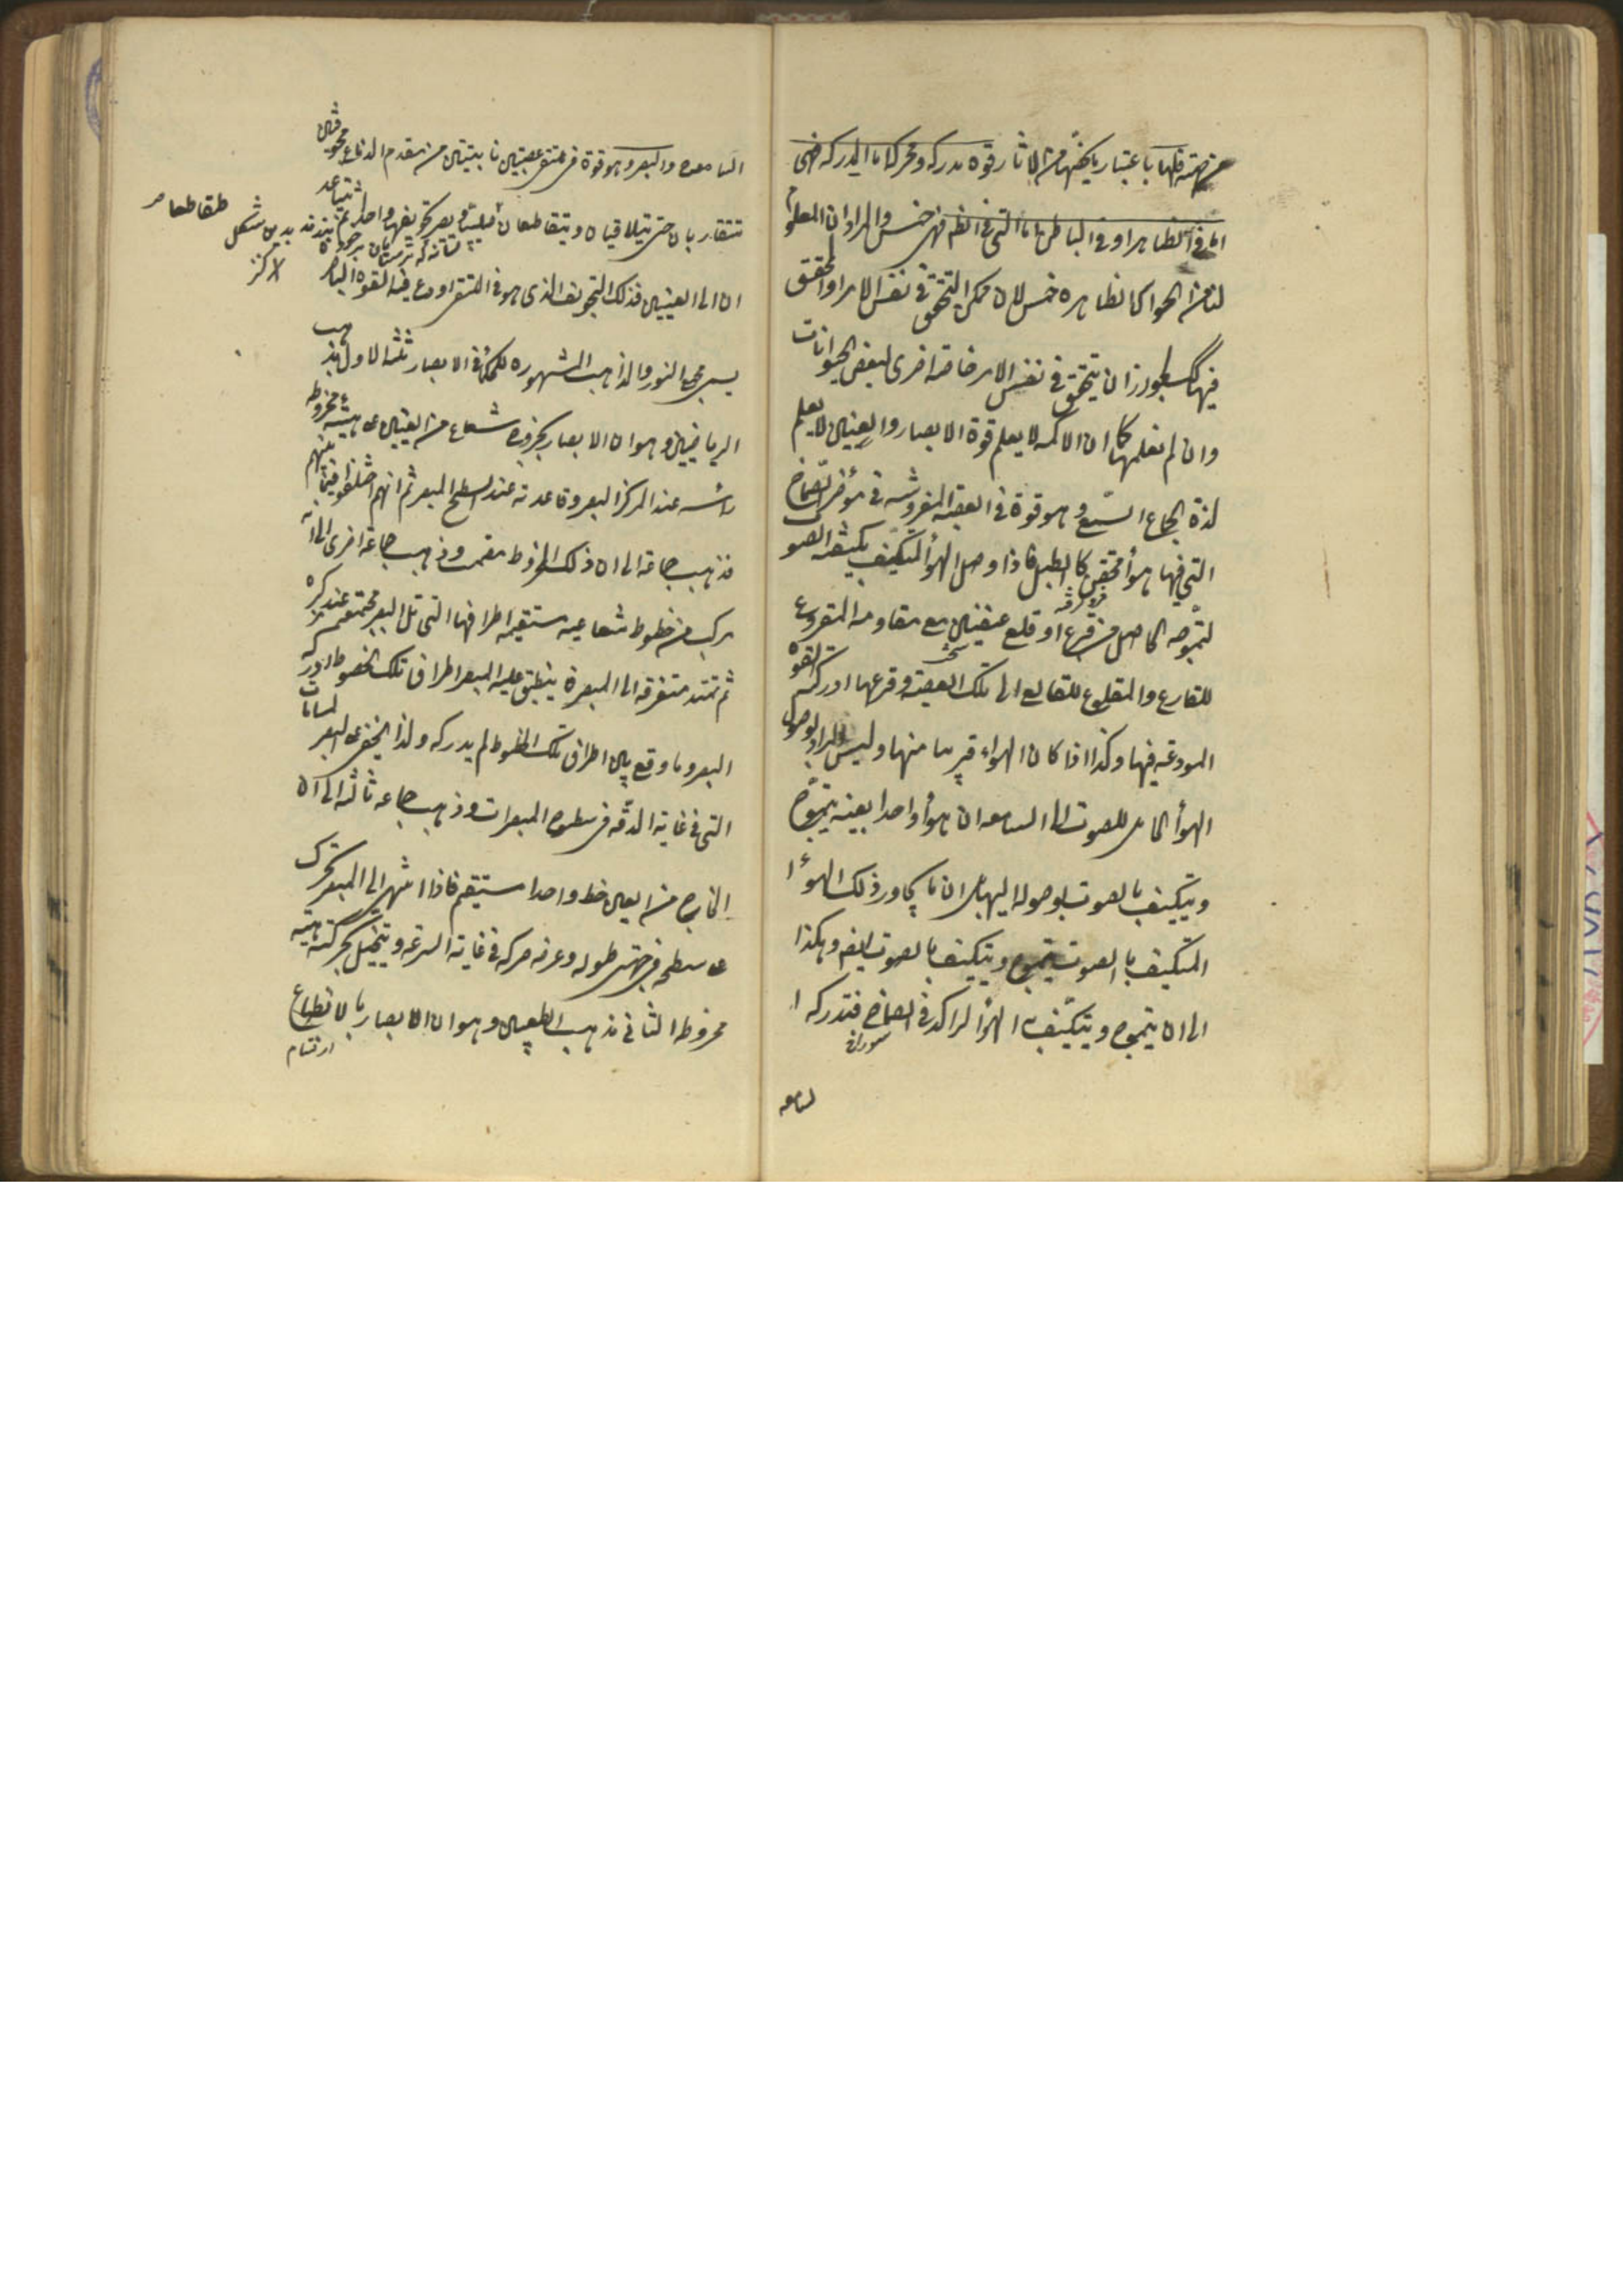 فلها باعتبار ما يخصها من الاثار قوة مدركة ومحركة اما المدركة فهى
اما فى الظاهر او فى الباطن اما التى فى الظاهر فهى خمس والمراد ان المعلوم
لنا من الحواس الظاهرة خمس لا ان ممكن التحقق فى نفس الامر او المتحقق
فيها كذلك لجواز ان يتحقق فى نفس الامر حاسة اخرى لبعض الحيوانات
وان لم نعلمها كما ان الاكمه لا يعلم قوة الابصار والعنين لا يعلم
لذة الجماع السمع وهو قوة فى العصبة المفروشة فى مؤخر الصماخ
التى فيها هوأ محتقن كالطبل فاذا وصل الهوأ المتكيف بكيفية الصوت
لتموجه الحاصل من قرع او قلع عنيفين مع مقاومة المقروع
للقارع والمقلوع للقالع الى تلك العصبة وقرعها ادركته القوة
المودعة فيها وكذا اذا كان الهواء قريبا منها وليس المراد بوصول
الهوأ الحامل للصوت الى السامعة ان هوأ واحدا بعينه يتموج
ويتكيف بالصوت يوصله اليها بل ان ما يجاور ذلك الهوأ
المتكيف بالصوت يتموج ويتكيف بالصوت ايضا وهكذا
الى ان يتموج ويتكيف به الهوأ الراكد فى الصماخ فتدركه ا
لسامعة
السامعة والبصر وهو قوة فى ملتقى عصبتين نابتتين من مقدم الدماغ مجوفتين
تتقاربان حتى تتلاقيان ويتقاطعان تقاطعا صليبيا ويصير تجويفهما واحدا ثم تتباعد
ان الى العينين فذلك التجويف الذى هو فى الملتقى اودع فيه القوة الباصرة
يسمى مجمع النور والمذاهب المشهورة للحكمأ فى الابصار ثلثة الاول مذهب
الرياضيين وهو ان الابصار بخروج شعاع من العينين على هيئة مخروط
رأسه عند المركز البصر وقاعدته عند سطح المبصر ثم انهم اختلفوا فيما بينهم
فذهب جماعة الى ان ذلك المخروط مصمت وذهب جماعة اخرى الى انه
مركب من خطوط شعاعية مستقيمة اطرافها التى تلى البصر مجتمعة عند مركزه
ثم تمتد متفرقة الى المبصر فما ينطبق عليه من المبصر اطراف تلك الخطوط ادركه
البصر وما وقع بين اطراف تلك الخطوط لم يدركه ولذا يخفى على البصر المسامات
التى فى غاية الدقة فى سطوح المبصرات وذهب جماعة ثالثة الى ان
الخارج من العين خط واحد مستقيم فاذا انتهى الى المبصر تحرك
على سطحه فى جهتى طوله وعرضه حركة فى غاية السرعة ويتخيل بحركته هيئة
مخروط الثانى مذهب الطبيعيين وهو ان الابصار بالانطباع
ارتسام